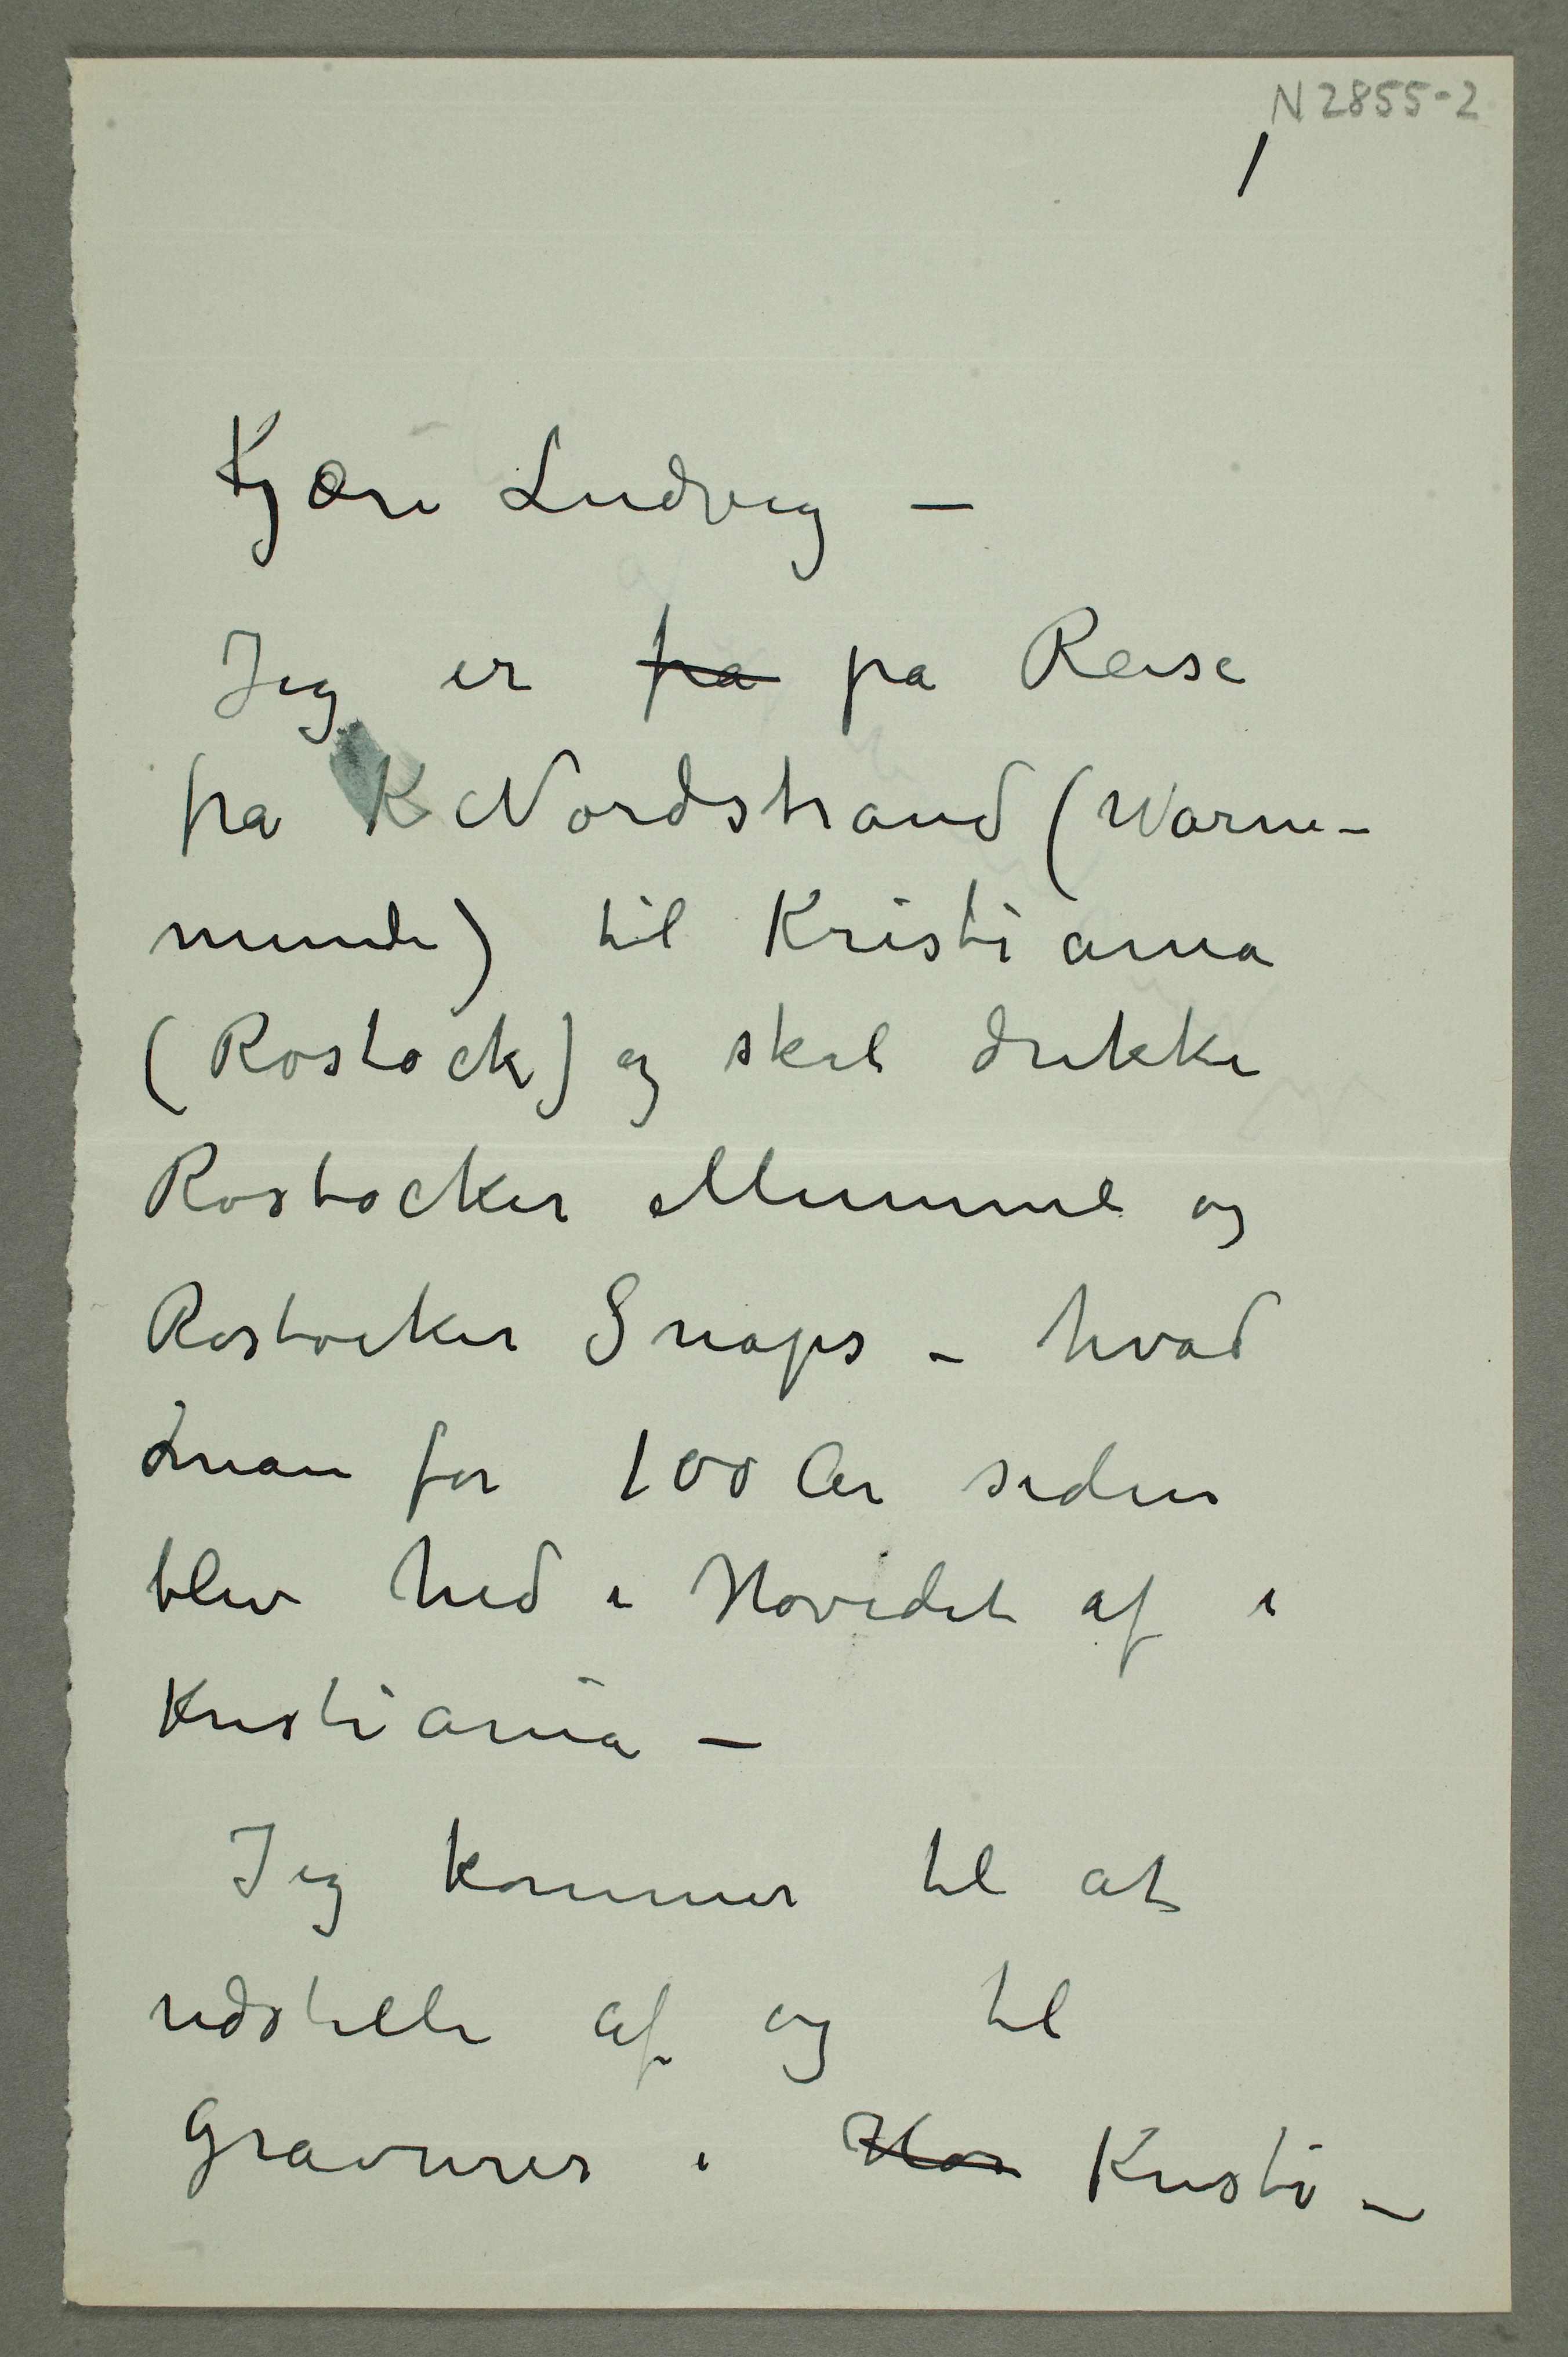 N 2855-2
1
Kjære Ludvig –
Jeg er fra på Reise
fra K Nordstrand (Warne-
munde) til Kristiania
(Rostock) og skal drikke
Rostocker Mumme og
Rostocker Snaps – hvad
man for 100 År siden
blev hed i Hovedet af i
Kristiania –
Jeg kommer til at
udstille af og til
Gravurer i Kristi–